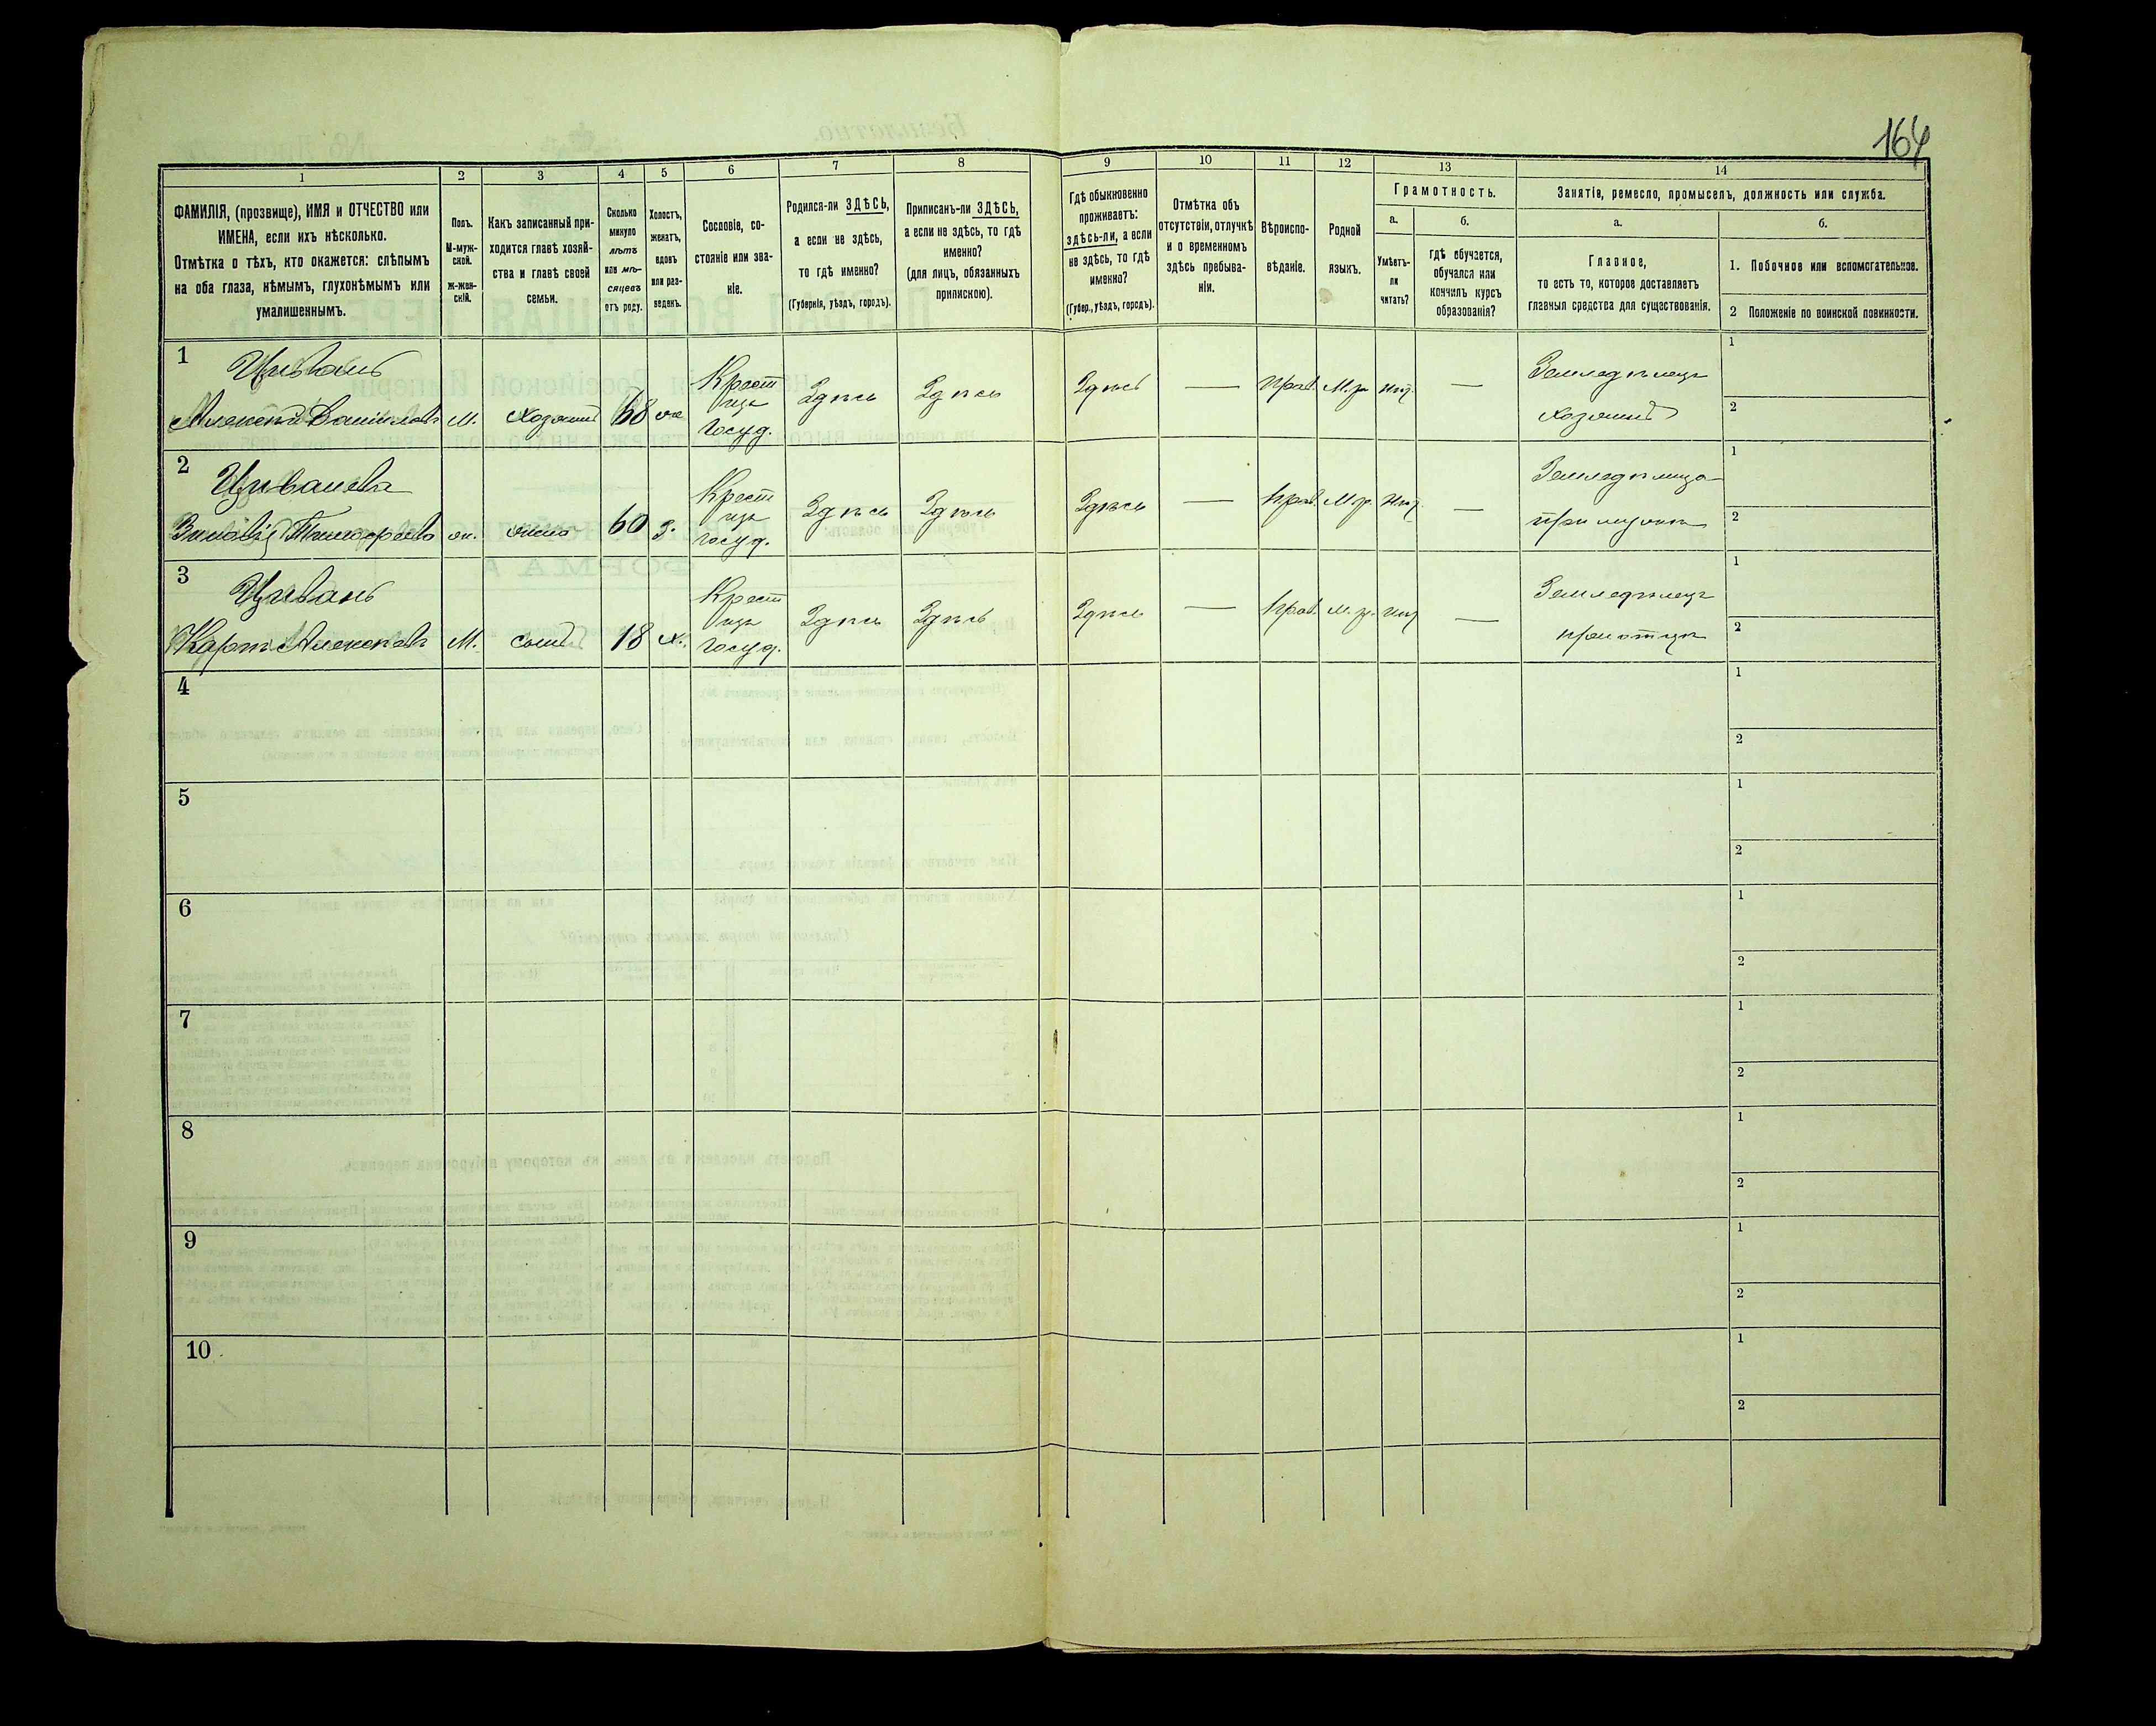 164
1
2
3
4
5
6
7
8
9
10
11
12
13
14
ФАМИЛІЯ, (прозвище), ИМЯ и ОТЧЕСТВО или
ИМЕНА, если ихъ нѣсколько.
Отмѣтка о тѣхъ, кто окажется: слѣпымъ
на оба глаза, нѣмымъ, глухонѣмымъ или
умалишеннымъ.
Полъ.
М-муж-
ской.
ж-жен-
скій.
Какъ записанный при-
ходится главѣ хозяй-
ства и главѣ своей
семьи.
Сколько
минуло
лѣтъ
или мѣ-
сяцевъ
отъ роду.
Холостъ,
женатъ,
вдовъ
или раз-
веденъ.
Сословіе, со-
стояніе или зва-
ніе.
Родился-ли ЗДѢСЬ,
а если не здѣсь,
то гдѣ именно?
(Губернія, уѣздъ, городъ).
Приписанъ-ли ЗДѢСЬ,
а если не здѣсь, то гдѣ
именно?
(для лицъ, обязанныхъ
припискою).
Гдѣ обыкновенно
проживаетъ:
здѣсь-ли, а если
не здѣсь, то гдѣ
именно?
(Губер., уѣздъ, городъ).
Отмѣтка объ
отсутствіи, отлучкѣ
и о временномъ
здѣсь пребыва-
ніи.
Вѣроиспо-
вѣданіе.
Родной
языкъ.
Грамотность.
а.
Умѣетъ-
ли
читать?
б.
Гдѣ обучается,
обучался или
кончилъ курсъ
образованія?
Занятіе, ремесло, промыселъ, должность или служба.
а.
Главное,
то есть то, которое доставляетъ
главныя средства для существованія.
б.
1. Побочное или вспомогательное.
2 Положеніе по воинской повинности.
1
Цивань
Алексѣй Даниловъ М. хозяинъ 68 Крест Госуд. Здѣсь Здѣсь Здѣсь — Прав. М.р. нѣт — Земледѣлецъ
хозяинъ
1
2
2
Циванева
60 з. Крест Госуд. Здѣсь Здѣсь Здѣсь — Прав. М.р. нѣт —
при мужѣ
1
2
3
Цивань
Карпъ Алексѣевъ М. сынъ 18 х. Крест Госуд. Здѣсь Здѣсь Здѣсь — Прав. М.р. нѣт — Земледѣлецъ
при отцѣ
1
2
4
1
2
5
1
2
6
1
2
7
1
2
8
1
2
9
1
2
10
1
2